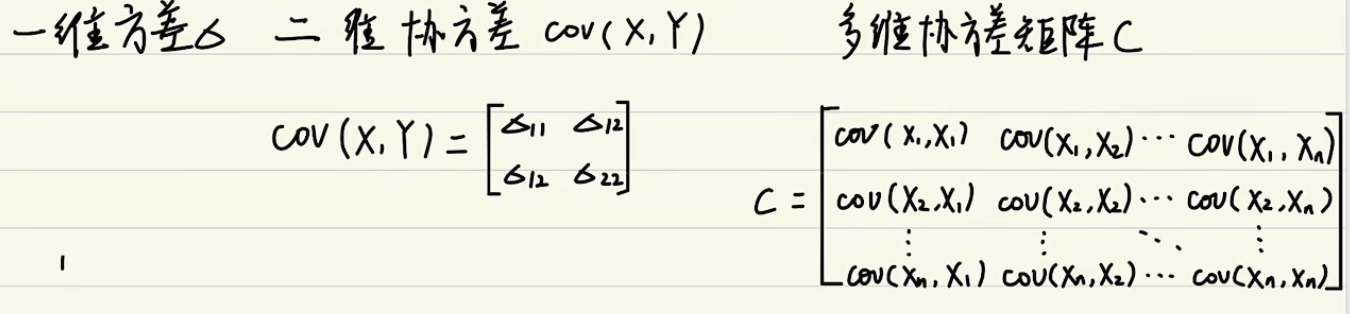 一维方差σ 二维协方差 cov(X,Y) 多维协方差矩阵C
cov(X,Y) = [σ11 σ12
σ12 σ22]
C = [cov(X1,X1) cov(X1,X2) ··· cov(X1,Xn)
cov(X2,X1) cov(X2,X2) ··· cov(X2,Xn)
⋮ ⋮ ⋱ ⋮
cov(Xn,X1) cov(Xn,X2) ··· cov(Xn,Xn)]